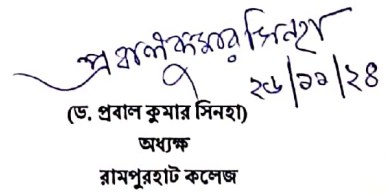 প্রবালকুমার সিনহা
২৬/১১/২৪
(ড. প্রবাল কুমার সিনহা)
অধ্যক্ষ
রামপুরহাট কলেজ